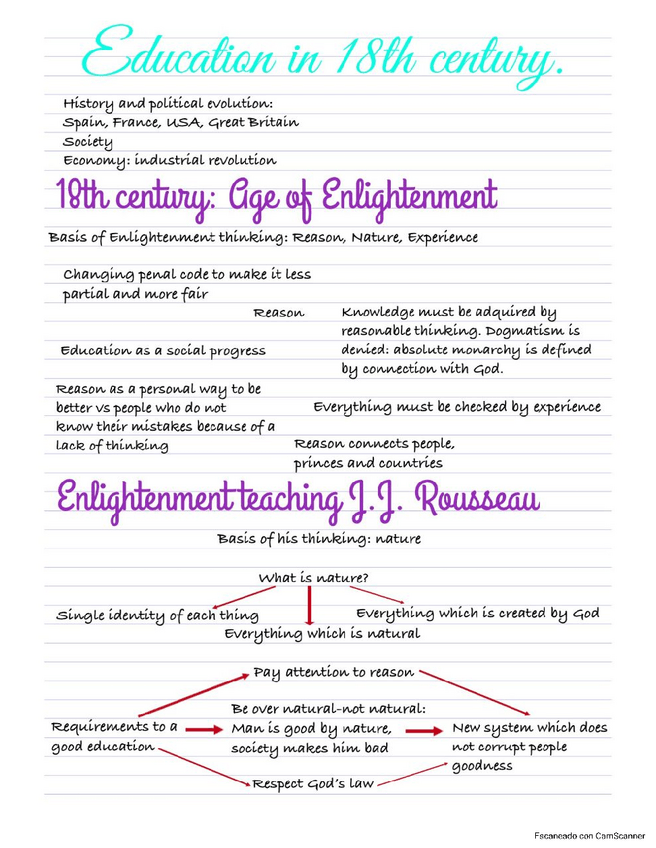 Education in 18th century.
History and political evolution:
Spain, France, USA, Great Britain
Society
Economy: industrial revolution
18th century: Age of Enlightenment
Basis of Enlightenment thinking: Reason, Nature, Experience
Changing penal code to make it less
partial and more fair
Reason
Knowledge must be adquired by
reasonable thinking. Dogmatism is
denied: absolute monarchy is defined
by connection with God.
Education as a social progress
Reason as a personal way to be
better vs people who do not
know their mistakes because of a
lack of thinking
Everything must be checked by experience
Reason connects people,
princes and countries
Enlightenment teaching J.J. Rousseau
Basis of his thinking: nature
What is nature?
Single identity of each thing
Everything which is created by God
Everything which is natural
Pay attention to reason
Requirements to a
good education
Be over natural-not natural:
Man is good by nature,
society makes him bad
New system which does
not corrupt people
goodness
Respect God's law
Escaneado con CamScanner